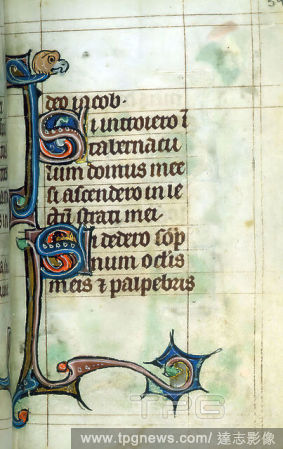 deo iacob·
Si introiero ī
tabernacu
lum domus mee
si ascendero in le
ctū strati mei
Si dedero sōp
num oclis
meis ⁊ palpebris
TPG
www.tpgnews.com/ 達志影像